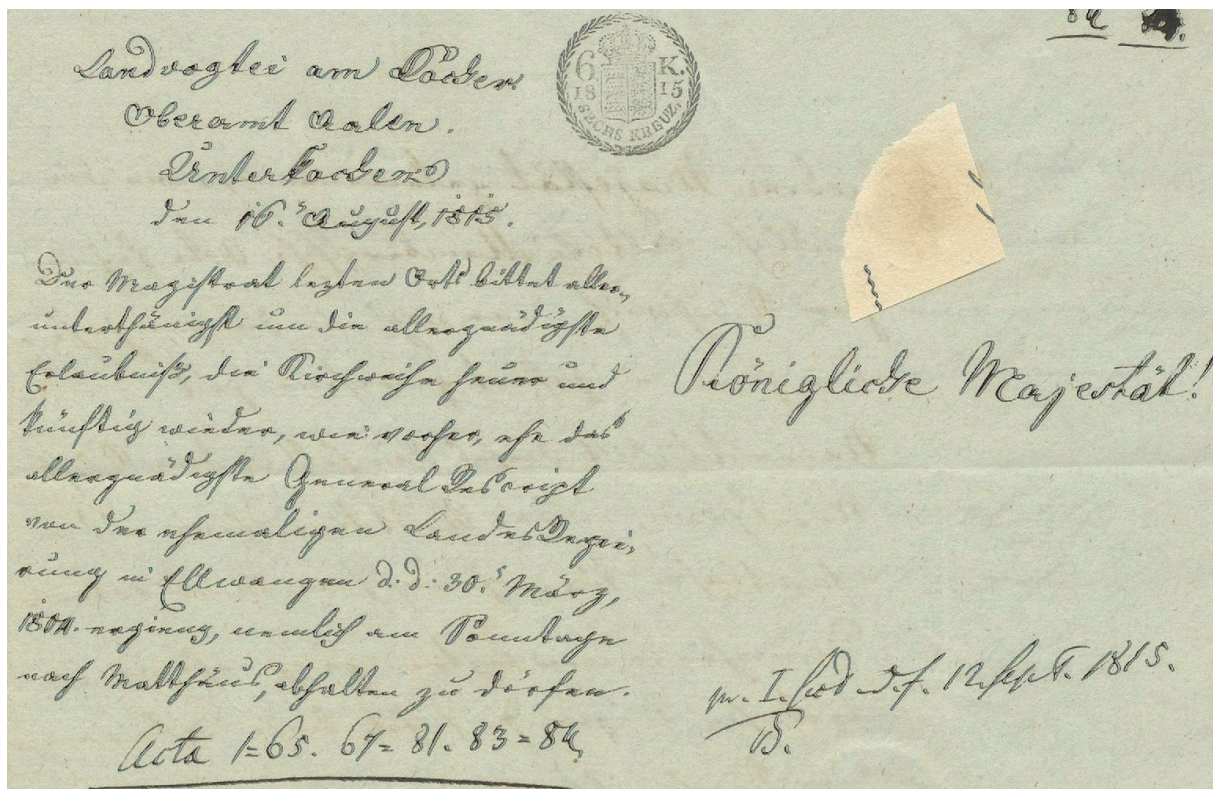 84
Landvogtei am Kocher
Oberamt Aalen.
Unterkochen
den 16.ⁿ August, 1815.
6 K.
18 15
SECHS KREUZ.
Der Magistrat lezten Orts bittet aller-
unterthänigst um die allergnädigste
Erlaubniß, die Kirchweihe heuer und
künftig wieder, wie vorher, ehe das
allergnädigste General Rescript
von der ehemaligen Landes Regie-
rung in Ellwangen d. d: 30.ⁿ März,
1804. ergieng, nemlich am Sonntage
nach Matthäus, abhalten zu dörfen.
Acta 1=65. 67=81. 83=84,
Königliche Majestät!
12. Sept. 1815.
B.